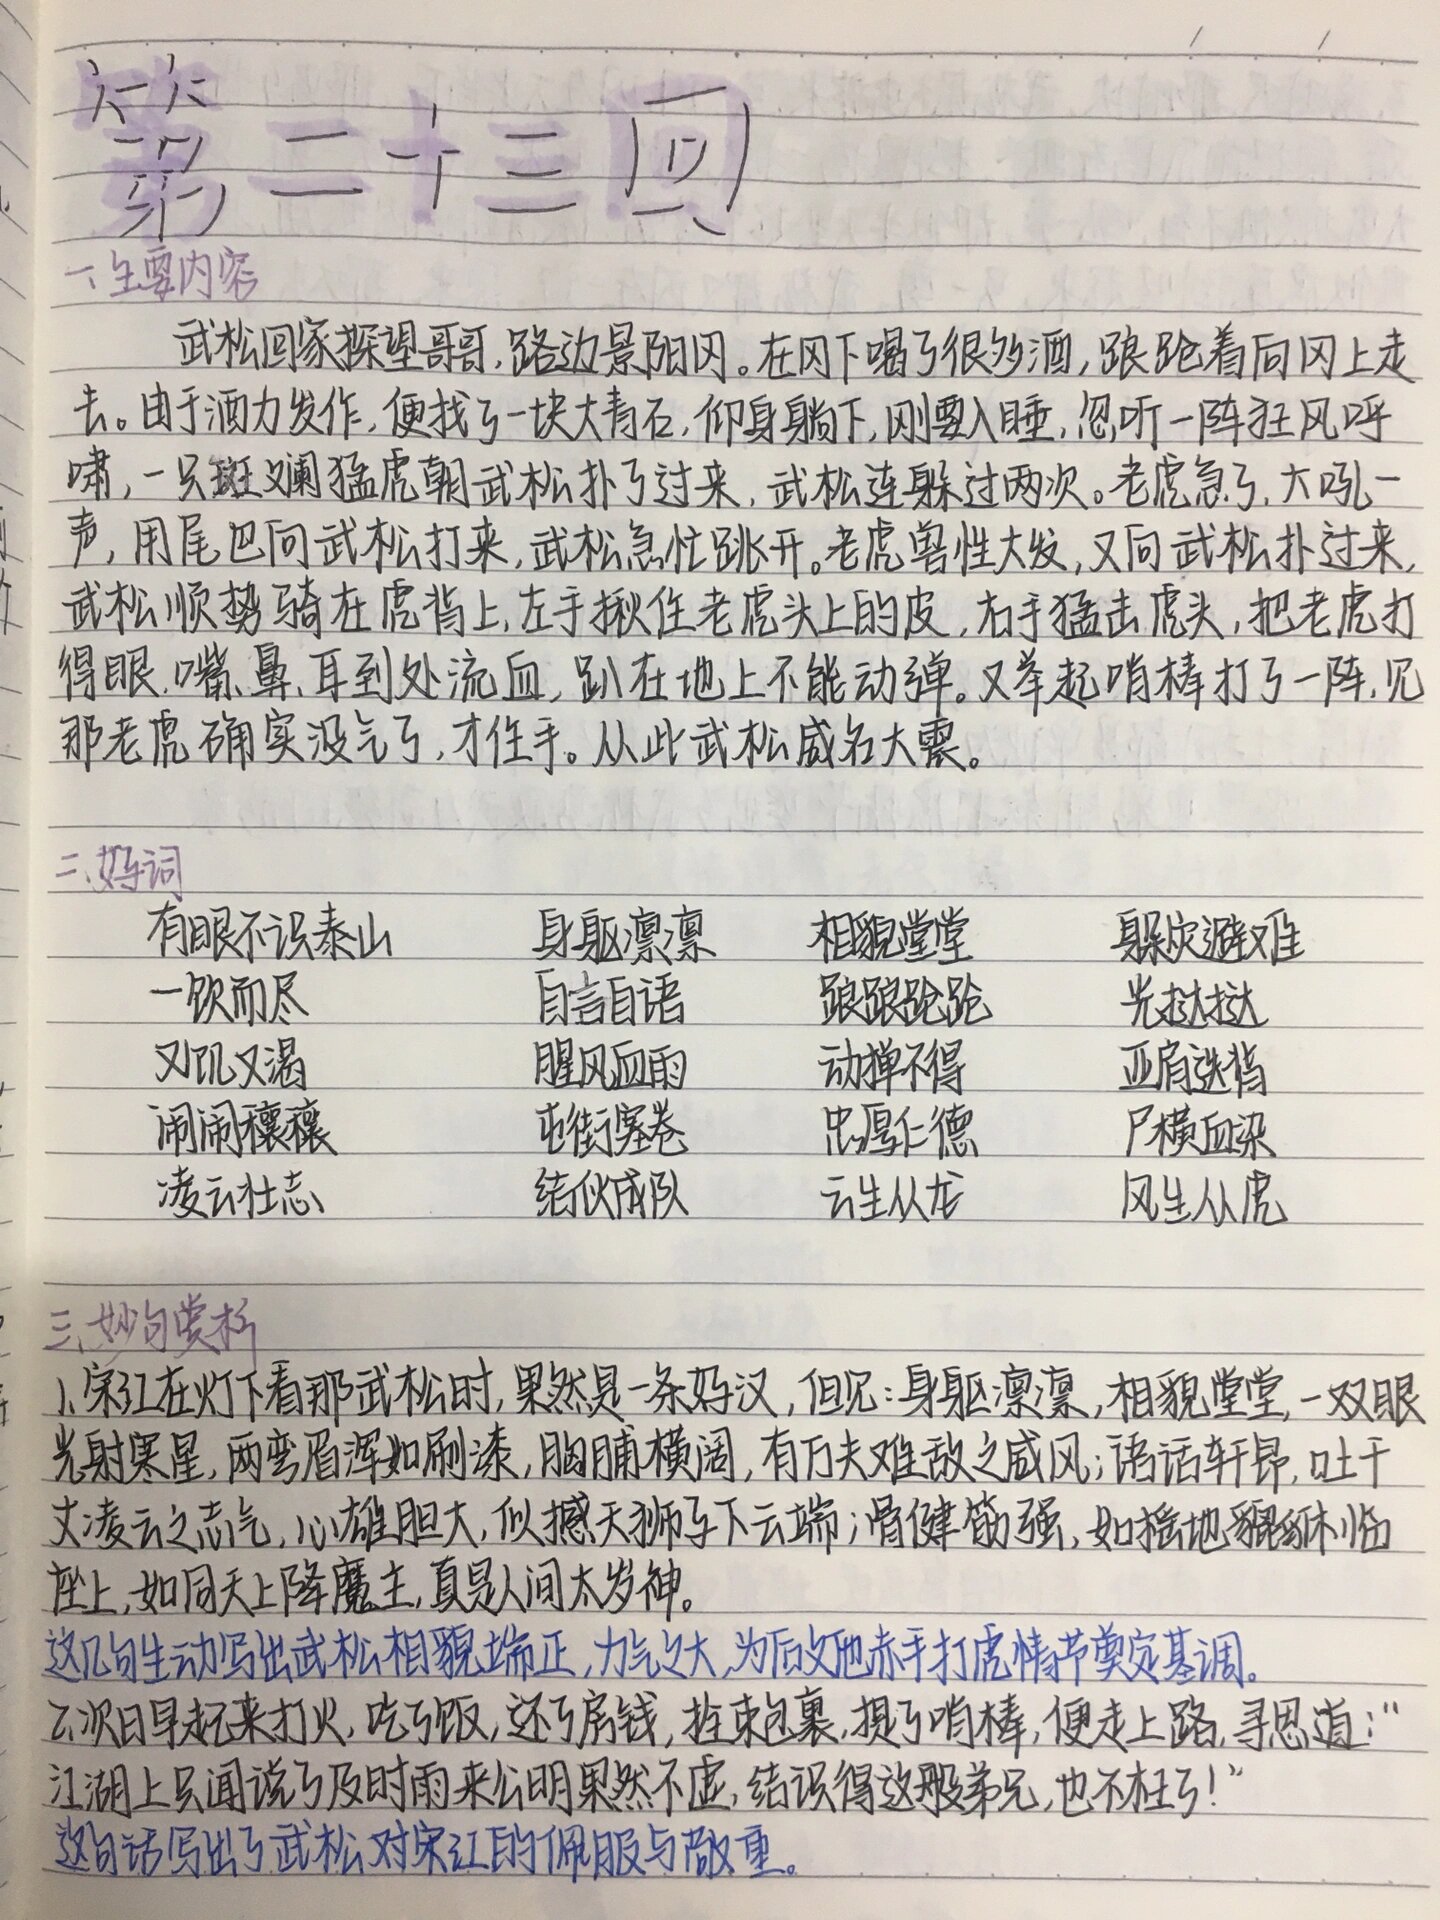 第二十三回
一、主要内容
武松回家探望哥哥,路边景阳冈。在冈下喝了很多酒,踉跄着向冈上走
去。由于酒力发作,便找了一块大青石,仰身躺下,刚要入睡,忽听一阵狂风呼
啸,一只斑斓猛虎朝武松扑了过来,武松连躲过两次。老虎急了,大吼一
声,用尾巴向武松打来,武松急忙跳开。老虎兽性大发,又向武松扑过来,
武松顺势骑在虎背上,左手揪住老虎头上的皮,右手猛击虎头,把老虎打
得眼、嘴、鼻、耳到处流血,趴在地上不能动弹。又举起哨棒打了一阵,见
那老虎确实没气了,才住手。从此武松威名大震。
二、好词
有眼不识泰山 身躯凛凛 相貌堂堂 躲灾避难
一饮而尽 自言自语 踉踉跄跄 光挞挞
又饥又渴 腥风血雨 动掸不得 亚肩迭背
闹闹穰穰 屯街塞巷 忠厚仁德 尸横血染
凌云壮志 结伙成队 云生从龙 风生从虎
三、妙句赏析
1、宋江在灯下看那武松时,果然是一条好汉,但见:身躯凛凛,相貌堂堂,一双眼
光射寒星,两弯眉浑如刷漆,胸脯横阔,有万夫难敌之威风;语话轩昂,吐千
丈凌云之志气,心雄胆大,似撼天狮子下云端;骨健筋强,如摇地貔貅临
座上,如同天上降魔主,真是人间太岁神。
这几句生动写出武松相貌端正,力气之大,为后文他赤手打虎情节奠定基调。
2、次日早起来打火,吃了饭,还了房钱,拴束包裹,提了哨棒,便走上路,寻思道:“
江湖上只闻说了及时雨宋公明果然不虚,结识得这般弟兄,也不枉了!”
这句话写出了武松对宋江的佩服与敬重。